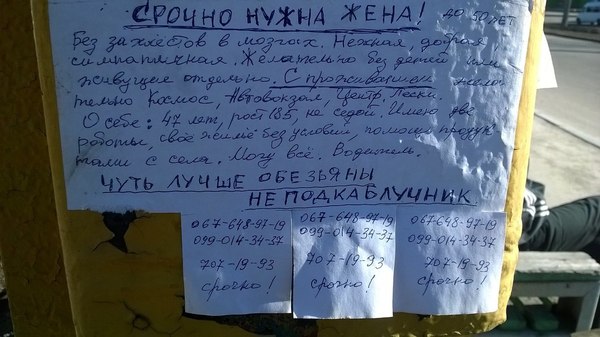 СРОЧНО НУЖНА ЖЕНА! до 50 лет
Без захлёстов в мозгах. Нежная, добрая,
симпатичная. Желательно без детей или
живущие отдельно. С проживанием жела-
тельно Космос, Автовокзал, Центр, Пески.
О себе: 47 лет, рост 185, не седой. Имею две
работы, своё жильё без условий, помощь продук-
тами с села. Могу всё. Водитель.
ЧУТЬ ЛУЧШЕ ОБЕЗЬЯНЫ
НЕ ПОДКАБЛУЧНИК
067-648-97-19
099-014-34-37
707-19-93
срочно!
067-648-97-19
099-014-34-37
707-19-93
срочно!
067-648-97-19
099-014-34-37
707-19-93
срочно!